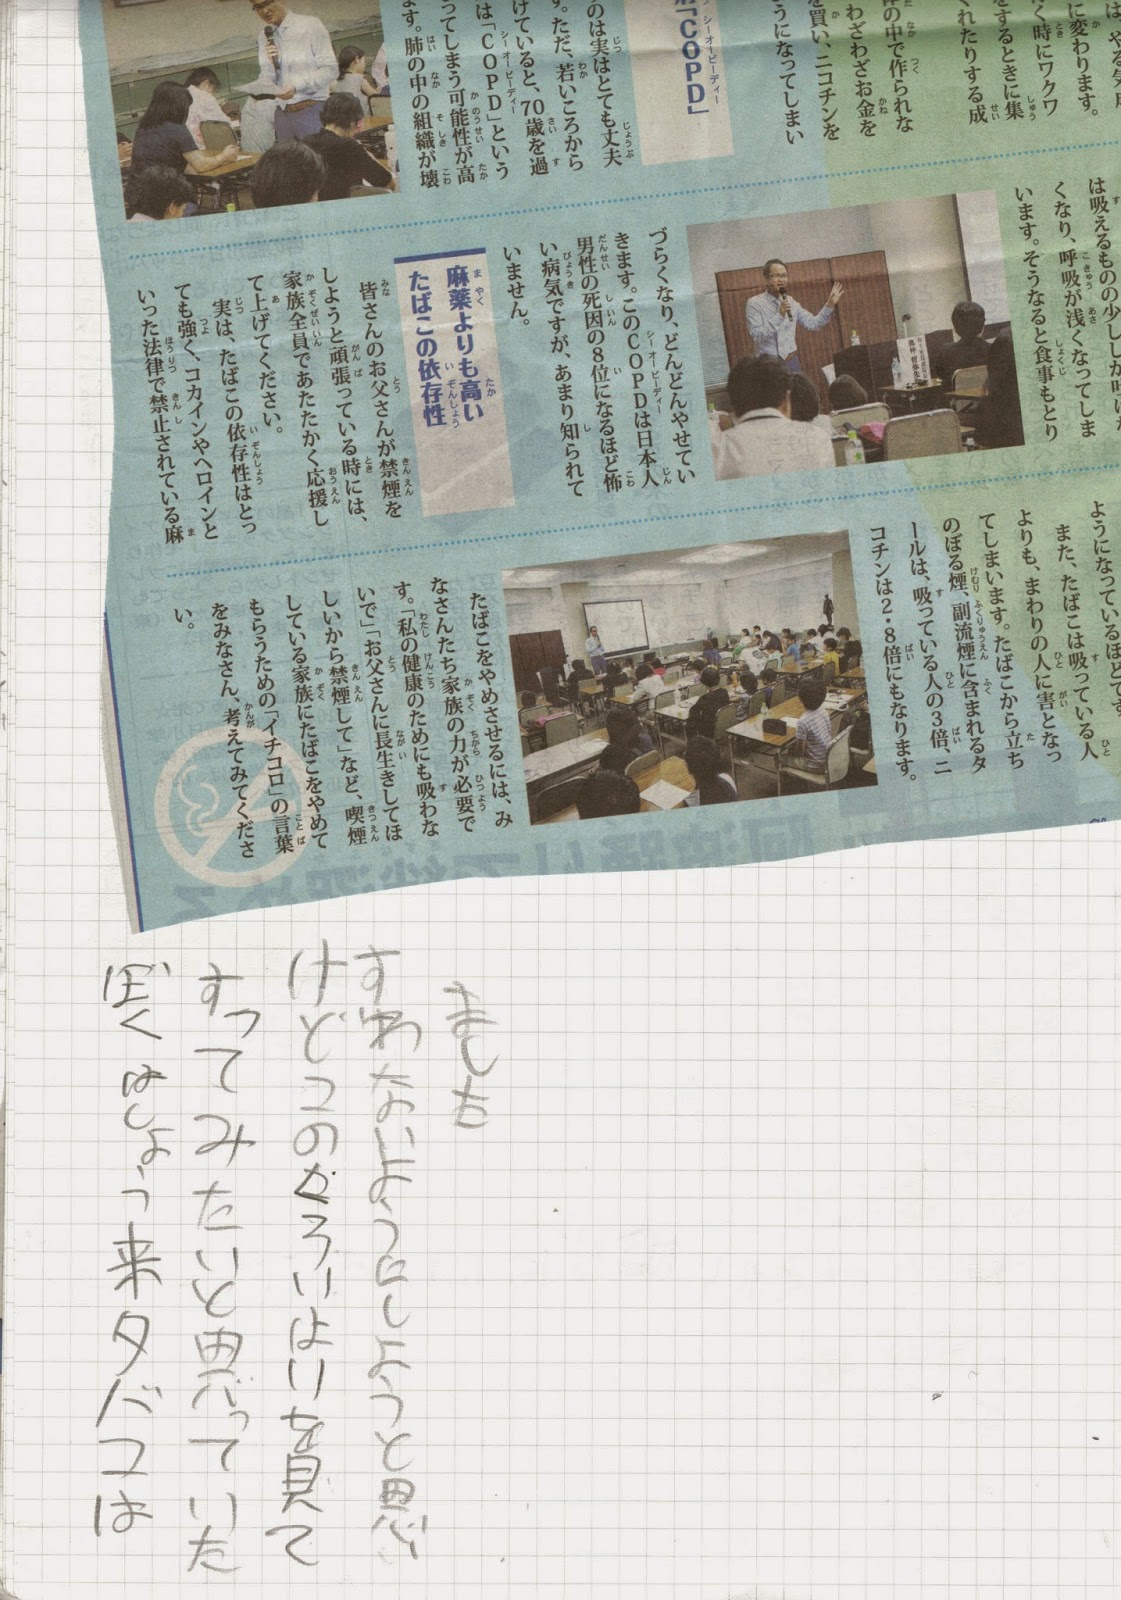 に変わります。
く時にワクワ
をするときに集
くれたりする成
の中で作られな
わざわざお金を
を買い、ニコチンを
うになってしまい
「COPD」
のは実はとても丈夫
す。ただ、若いころから
けていると、70歳を過
は「COPD」という
ってしまう可能性が高
ます。肺の中の組織が壊
は吸えるものの少ししか吐けな
くなり、呼吸が浅くなってしま
います。そうなると食事もとり
づらくなり、どんどんやせてい
きます。このCOPDは日本人
男性の死因の8位になるほど怖
い病気ですが、あまり知られて
いません。
麻薬よりも高い
たばこの依存性
皆さんのお父さんが禁煙を
しようと頑張っている時には、
家族全員であたたかく応援し
て上げてください。
実は、たばこの依存性はとっ
ても強く、コカインやヘロインと
いった法律で禁止されている麻
ようになっているほどです
また、たばこは吸っている人
よりも、まわりの人に害となっ
てしまいます。たばこから立ち
のぼる煙、副流煙に含まれるタ
ールは、吸っている人の3倍、ニ
コチンは2.8倍にもなります。
たばこをやめさせるには、み
なさんたち家族の力が必要で
す。「私の健康のためにも吸わな
いで」「お父さんに長生きしてほ
しいから禁煙して」など、喫煙
している家族にたばこをやめて
もらうための「イチコロ」の言葉
をみなさん、考えてみてくださ
い。
ぼくはしょう来タバコは
すってみたいと思っていた
けどこのくろいはいを見て
すわないようにしようと思い
ました